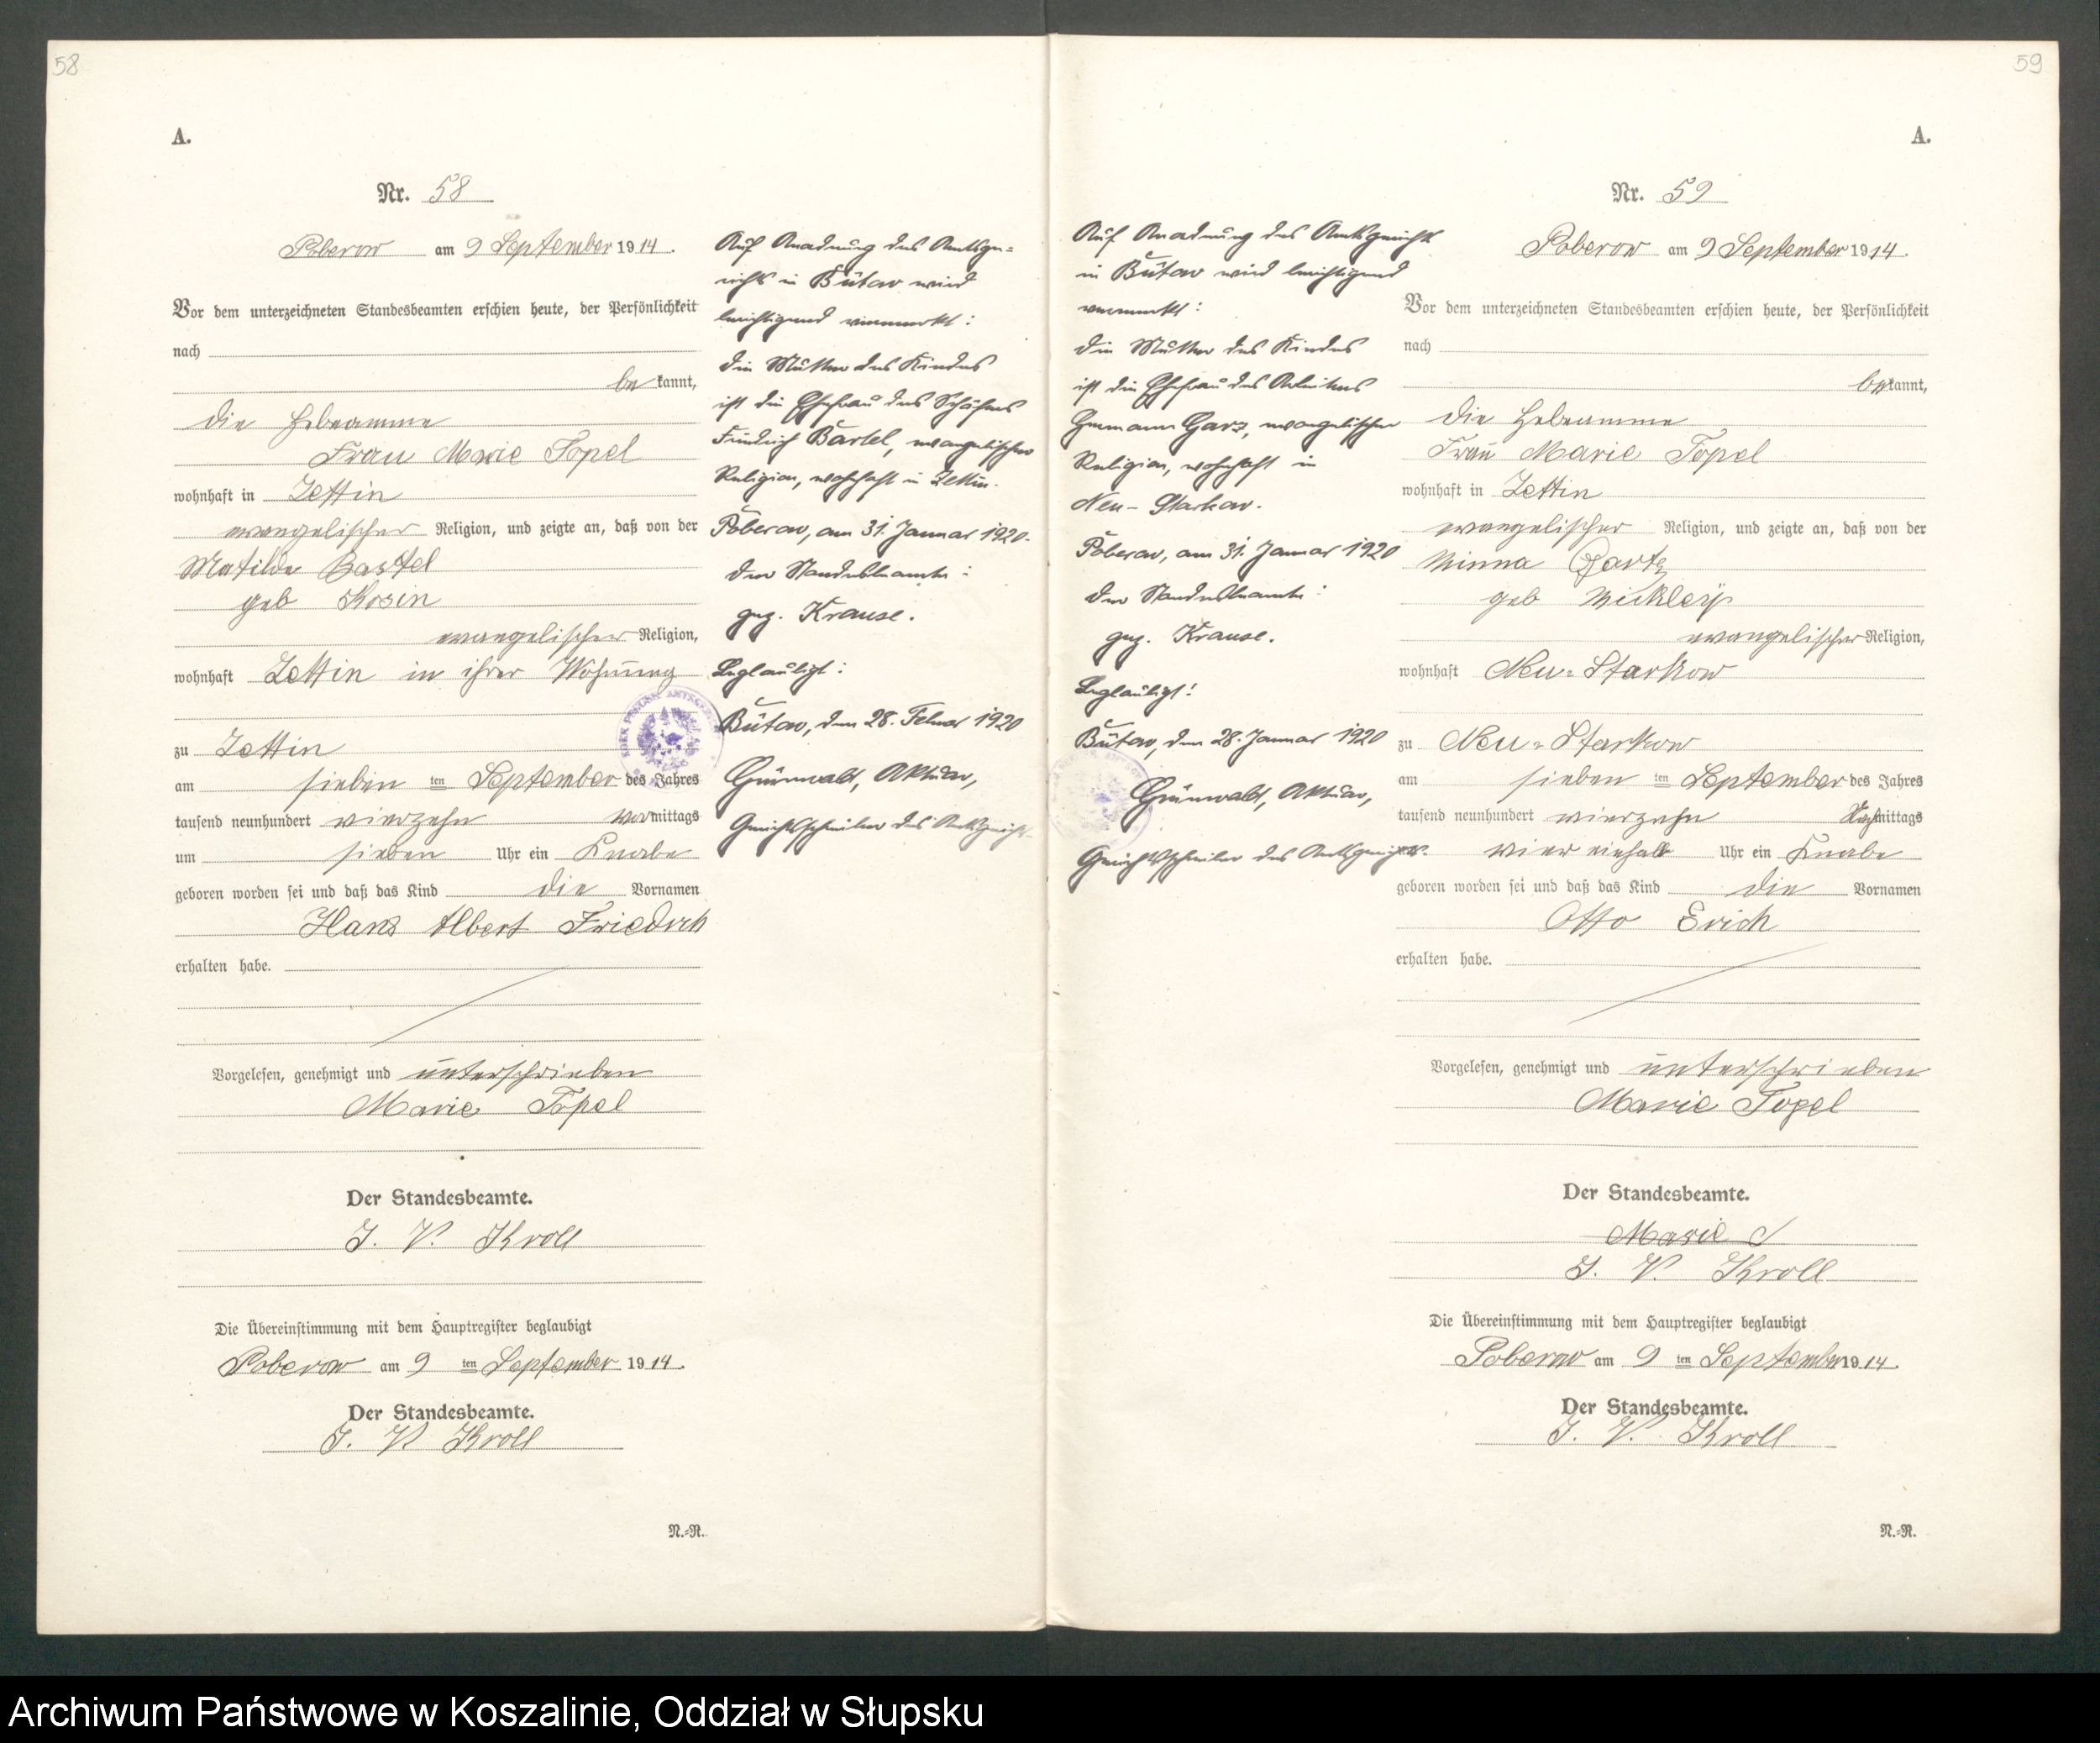 58
A.
Nr. 58
Poberow am 9 September 1914.
Vor dem unterzeichneten Standesbeamten erschien heute, der Persönlichkeit
nach
be kannt,
die Hebeamme
Frau Marie Topel
wohnhaft in Zettin
evangelischer Religion, und zeigte an, daß von der
Matilde Bartel
geb Kosin
evangelischer Religion,
wohnhaft Zettin in ihrer Wohnung
zu Zettin
am sieben ten September des Jahres
tausend neunhundert vierzehn Vormittags
um sieben Uhr ein Knabe
geboren worden sei und daß das Kind die Vornamen
Hans Albert Friedrch
erhalten habe.
Vorgelesen, genehmigt und unterschrieben
Marie Topel
Der Standesbeamte.
I. V. Kroll
Die Übereinstimmung mit dem Hauptregister beglaubigt
Poberow am 9 ten September 1914.
Der Standesbeamte.
I. V. Kroll
N.-R.
Auf Anordnung des Amtsge=
richts in Bütow wird
berichtigend vermerkt:
die Mutter des Kindes
ist die Ehefrau des Schäfers
Friedrich Bartel, evangelischer
Religion, wohnhaft in Zettin.
Poberow, am 31. Januar 1920.
der Standesbeamte:
gez. Krause.
Beglaubigt:
Bütow, den 28. Februar 1920
Grünwald, Aktuar,
Gerichtsschreiber des Amtsgerichts.
59
A.
Auf Anordnung des Amtsgerichts
in Bütow wird berichtigend
vermerkt:
die Mutter des Kindes
ist die Ehefrau des Arbeiters
Hermann Garz, evangelischer
Religion, wohnhaft in
Neu-Starkow.
Poberow, am 31. Januar 1920
der Standesbeamte:
gez. Krause.
Beglaubigt!
Bütow, den 28. Januar 1920
Grünwald, Aktuar,
Gerichtsschreiber des Amtsgerichts.
Nr. 59
Poberow am 9 September 1914.
Vor dem unterzeichneten Standesbeamten erschien heute, der Persönlichkeit
nach
be kannt,
die Hebeamme
Frau Marie Topel
wohnhaft in Zettin
evangelischer Religion, und zeigte an, daß von der
Minna Gartz
geb
evangelischer Religion,
wohnhaft Neu=Starkow
zu Neu=Starkow
am sieben ten September des Jahres
tausend neunhundert vierzehn Nachmittags
um vier einhalb Uhr ein Knabe
geboren worden sei und daß das Kind die Vornamen
Otto Erich
erhalten habe.
Vorgelesen, genehmigt und unterschrieben
Marie Topel
Der Standesbeamte.
Marie
I. V. Kroll
Die Übereinstimmung mit dem Hauptregister beglaubigt
Poberow am 9 ten September 1914.
Der Standesbeamte.
I. V. Kroll
N.-R.
Archiwum Państwowe w Koszalinie, Oddział w Słupsku